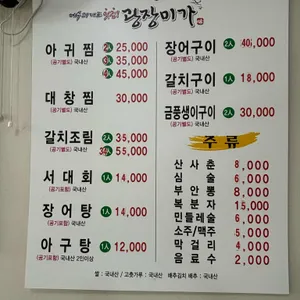 광장미가
아귀찜 2人 25,000
(공기별도) 국내산 35,000
45,000
대창찜 30,000
(공기별도) 국내산
갈치조림 2人 35,000
(공기별도) 국내산 55,000
서대회 1人 14,000
(공기포함) 국내산
장어탕 1人 14,000
(공기포함) 국내산
아구탕 1人 12,000
(공기포함) 국내산 2인이상
장어구이 2人 40,000
(공기별도) 국내산
갈치구이 1人 18,000
(공기별도) 국내산
금풍생이구이 2人 30,000
(공기별도) 국내산
주류
산사춘 8,000
심술 6,000
부안뽕 8,000
복분자 15,000
민들레술 6,000
소주/맥주 5,000
막걸리 4,000
음료수 2,000
쌀 : 국내산 / 고춧가루 : 국내산 배추김치 배추 : 국내산